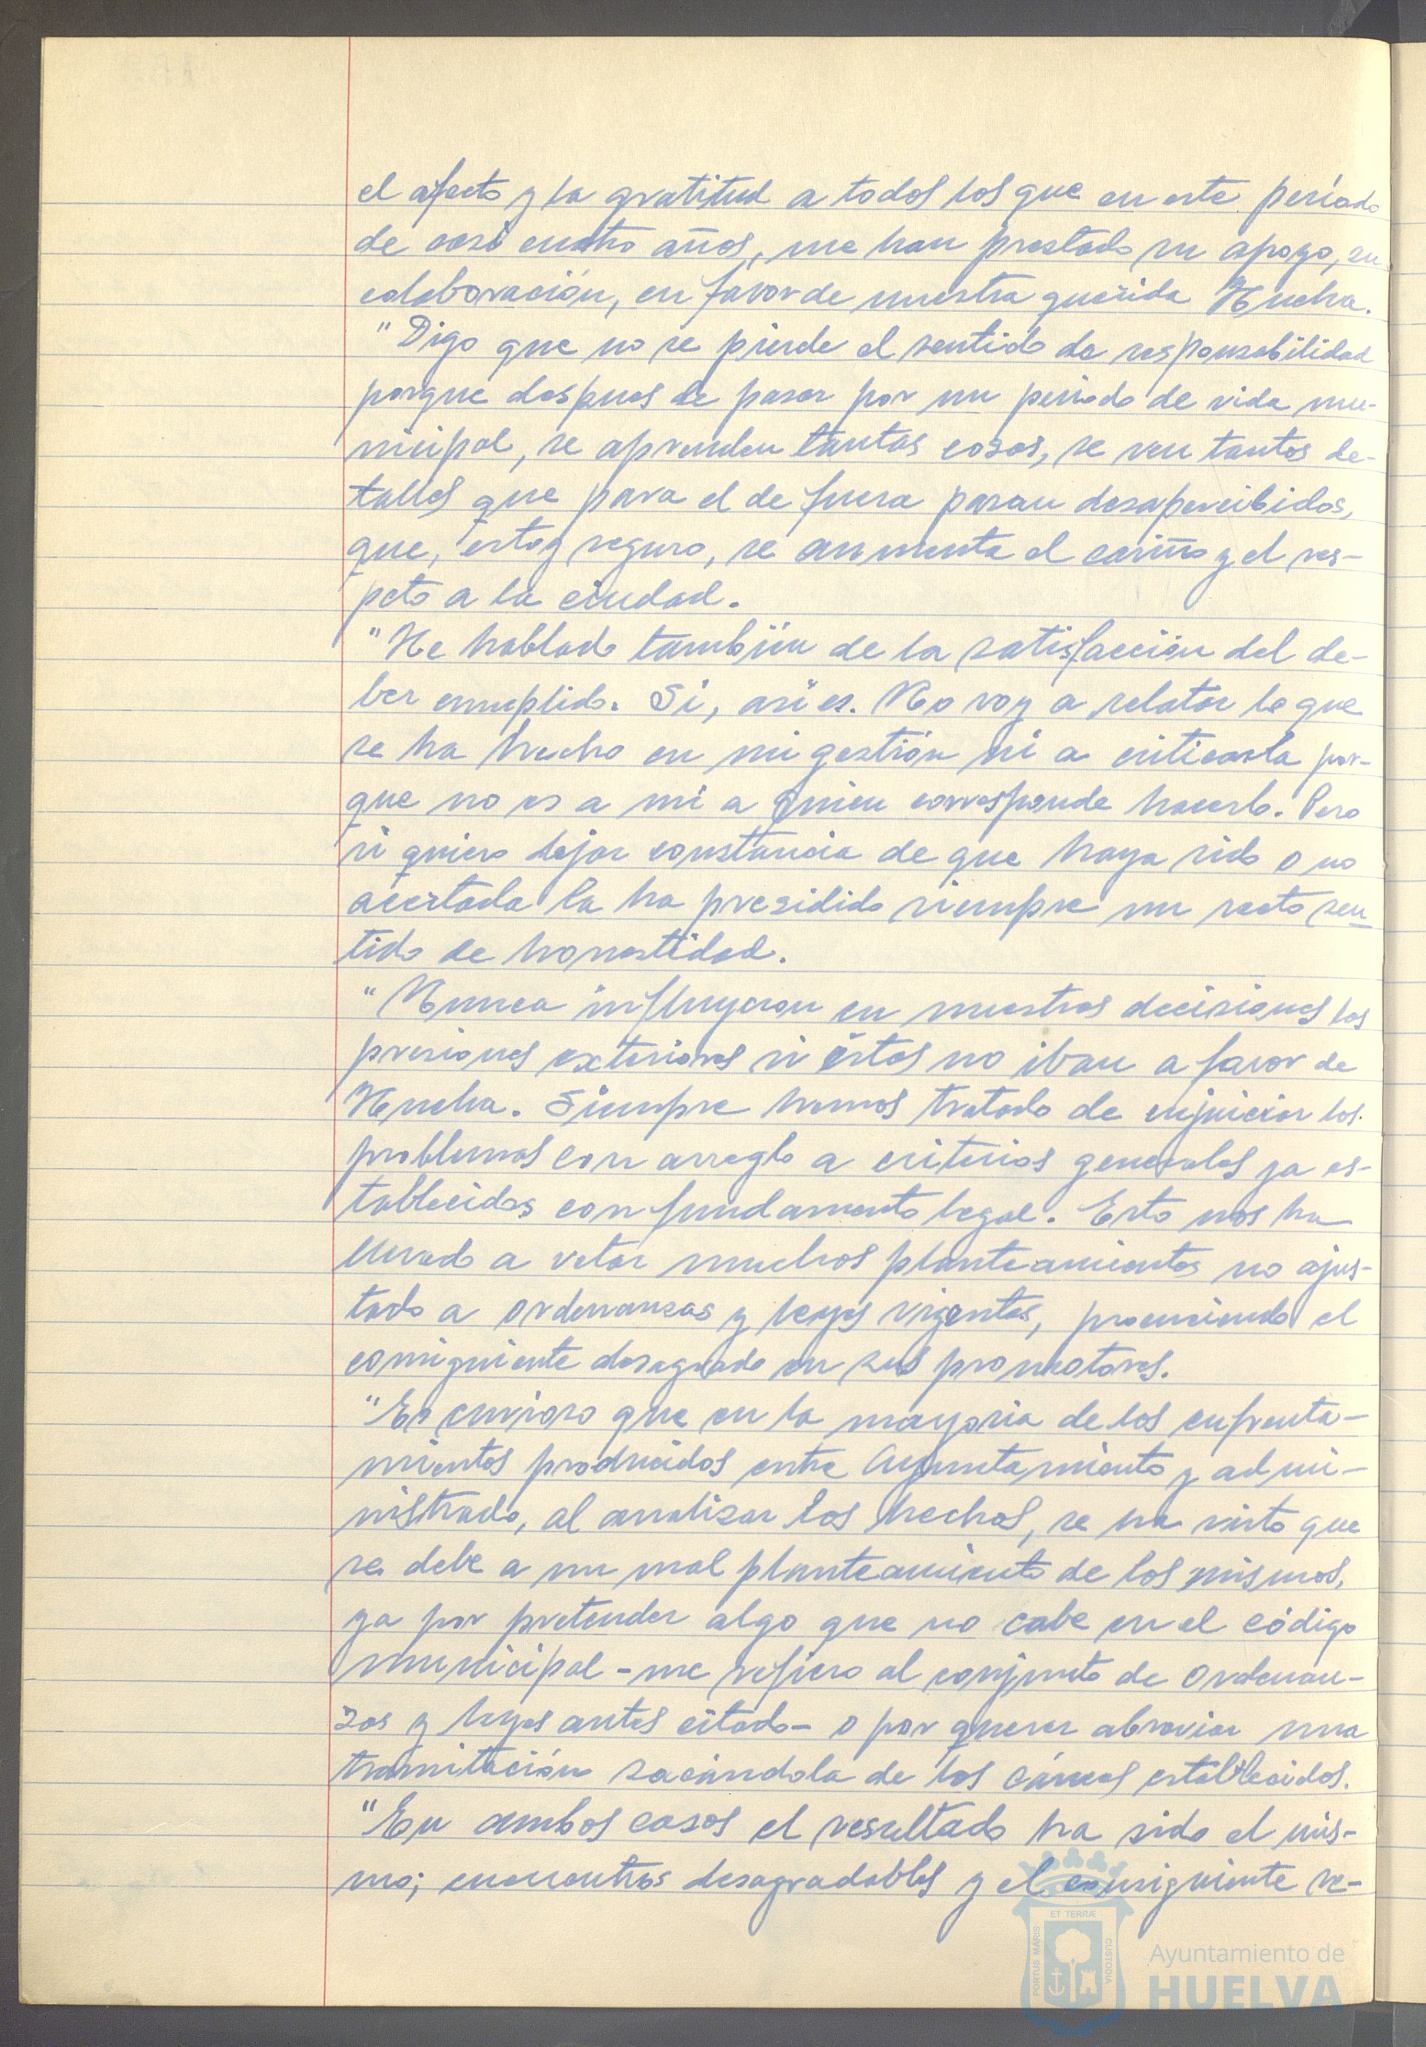 el afecto y la gratitud a todos los que en este período
de casi cuatro años, me han prestado su apoyo, su
colaboración, en favor de nuestra querida Huelva.
"Digo que no se pierde el sentido de responsabilidad
porque despues de pasar por un periodo de vida mu-
nicipal, se aprenden tantas cosas, se ven tantos de-
talles que para el de fuera pasan desapercibidos,
que, estoy seguro, se aumenta el cariño y el res-
peto a la ciudad.
"He hablado también de la satisfacción del de-
ber cumplido. Si, así es. No voy a relatar lo que
se ha hecho en mi gestión ni a criticarla por-
que no es a mi a quien corresponde hacerlo. Pero
si quiero dejar constancia de que haya sido o no
acertada la ha presidido siempre un recto sen-
tido de honestidad.
"Nunca influyeron en nuestras decisiones las
presiones exteriores si éstas no iban a favor de
Huelva. Siempre hemos tratado de enjuiciar los
problemas con arreglo a criterios generales ya es-
tablecidos con fundamento legal. Esto nos ha
llevado a vetar muchos planteamientos no ajus-
tado a ordenanzas y leyes vigentes, provocando el
consiguiente desagrado en sus promotores.
"Es curioso que en la mayoria de los enfrenta-
mientos producidos entre Ayuntamiento y admi-
nistrado, al analizar los hechos, se ha visto que
se debe a un mal planteamiento de los mismos,
ya por pretender algo que no cabe en el código
municipal - me refiero al conjunto de ordenan-
zas y leyes antes citado - o por querer abreviar una
tramitación sacándola de los cauces establecidos.
"En ambos casos el resultado ha sido el mis-
mo; encuentros desagradables y el consiguiente re-
PORTUS MARIS ET TERRÆ CUSTODIA
Ayuntamiento de
HUELVA